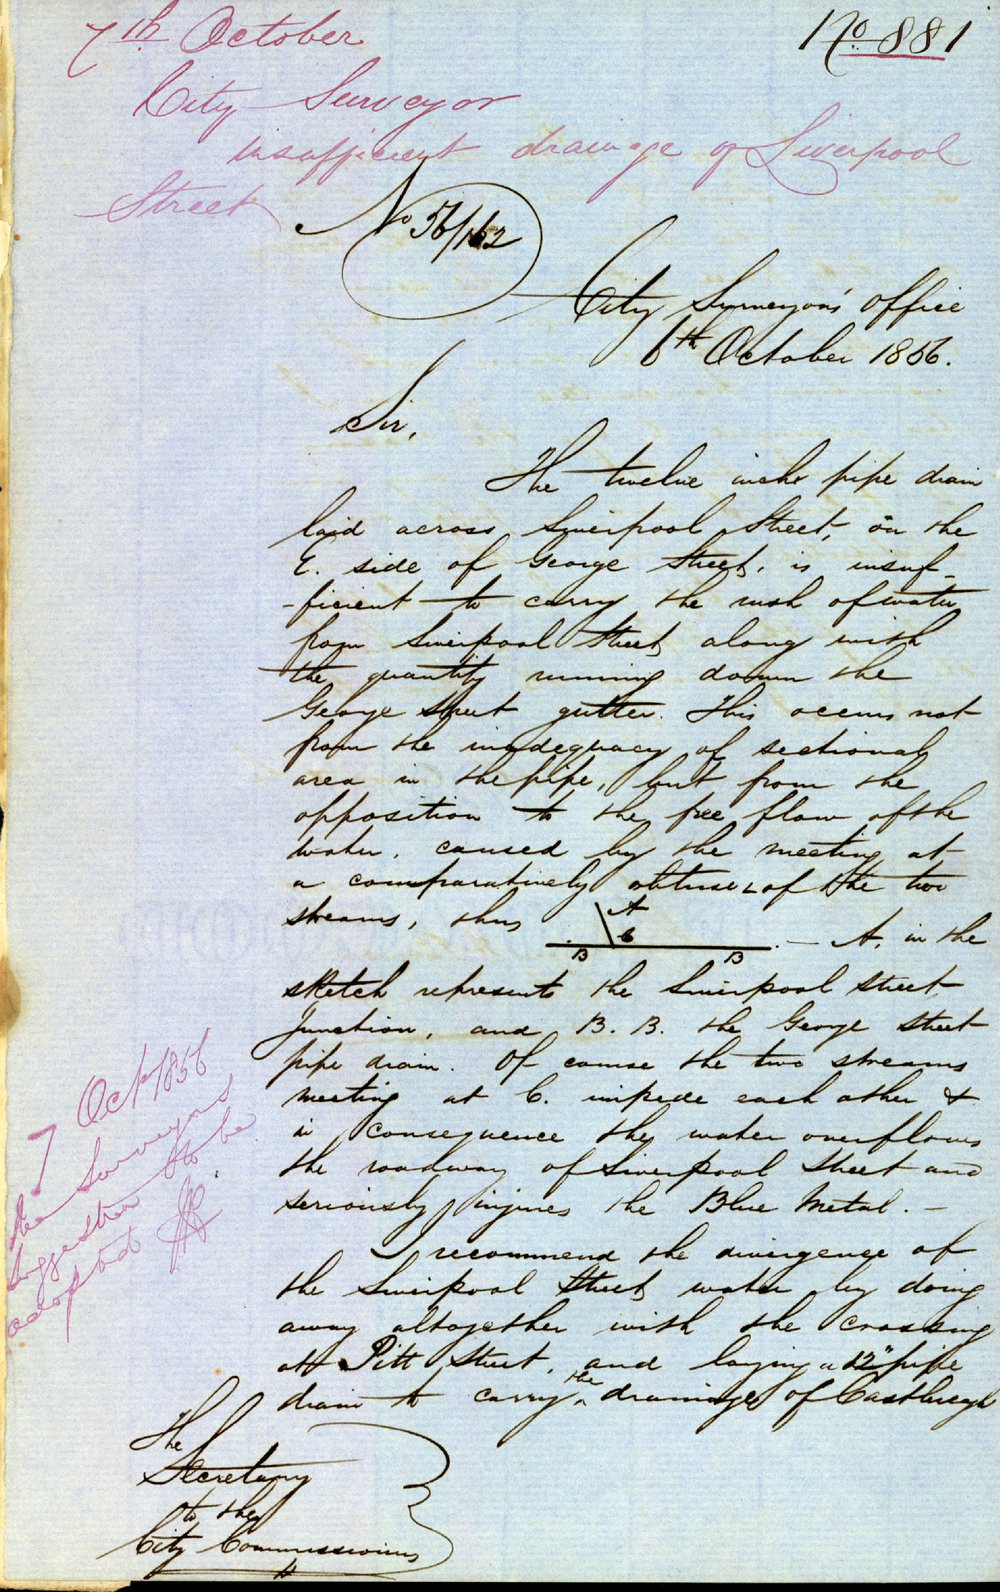 7th October
No. 881
City Surveyor
insufficient drainage of Liverpool
Street
No 56/162
City Surveyor's Office
6th October 1856.
Sir,
The twelve inch pipe drain
laid across Liverpool Street, on the
E. side of George Street, is insuf-
-ficient to carry the rush of water
from Liverpool Street along with
the quantity running down the
George Street gutter. This occurs not
from the inadequacy of sectional
area in the pipe, but from the
opposition to the free flow of the
water, caused by the meeting at
a comparatively obtuse ∠ of the two
streams, thus
A
C
B B
— A, in the
sketch represents the Liverpool Street
Junction, and B. B. the George Street
pipe drain. Of course the two streams
meeting at C. impede each other &
in consequence the water overflows
the roadway of Liverpool Street and
seriously injures the Blue Metal. —
I recommend the divergence of
the Liverpool Street water by doing
away altogether with the crossing
at Pitt Street, and laying a 12" pipe
drain to carry the drainage of Castlereagh
The
Secretary
to the
City Commissioners
7 Oct 1856
The Surveyors
suggestion to be
adopted